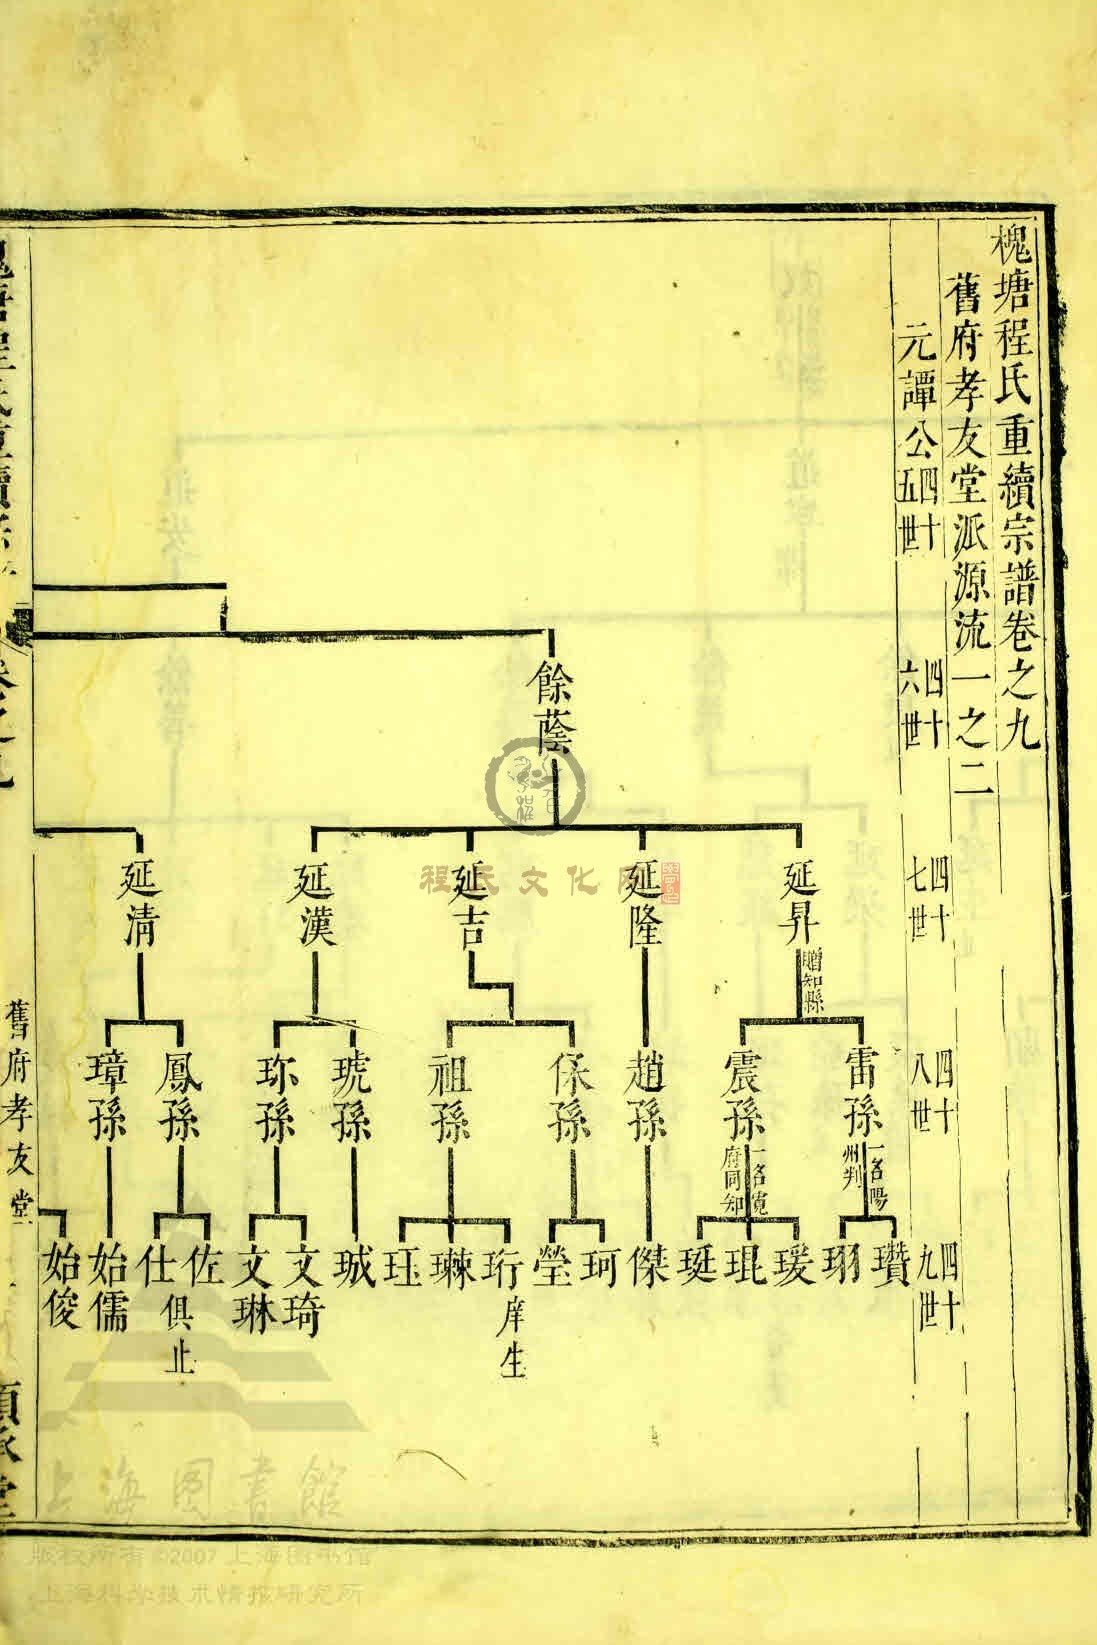 槐塘程氏重續宗譜卷之九
舊府孝友堂派源流一之二
元譚公四十五世
四十六世
四十七世
四十八世
四十九世
餘蔭
延昇
贈知縣
延隆
延吉
延漢
延清
雷孫
一名陽
州判
震孫
一名寬
府同知
趙孫
保孫
祖孫
琥孫
珎孫
鳳孫
璋孫
瓚
珝
瑗
琨
珽
傑
珂
瑩
珩
庠生
琳
珏
珹
文琦
文琳
佐
仕
俱止
始儒
始俊
卷之九
舊府孝友堂
順承堂
程氏文化网
上海图書館
版权所有©2007上海图书馆
上海科学技术情报研究所